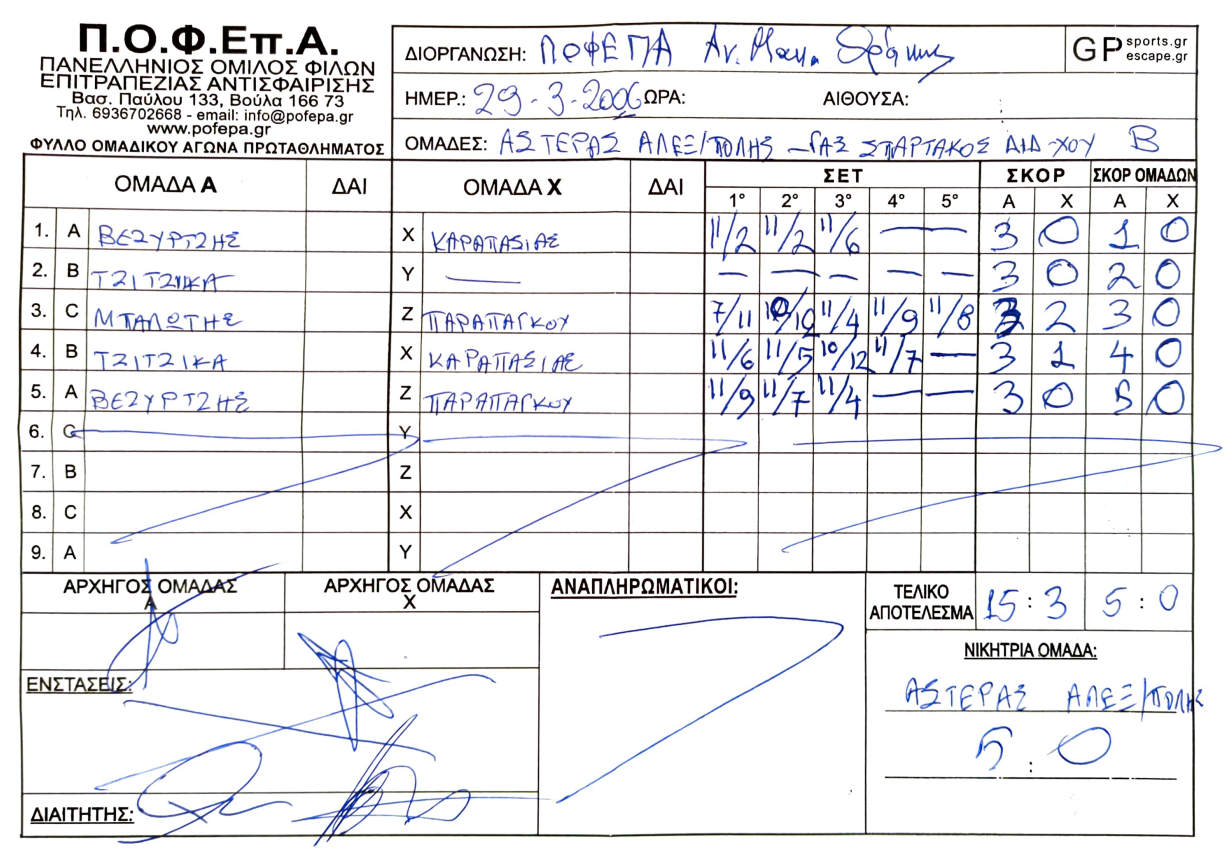 Π.Ο.Φ.Επ.Α.
ΠΑΝΕΛΛΗΝΙΟΣ ΟΜΙΛΟΣ ΦΙΛΩΝ
ΕΠΙΤΡΑΠΕΖΙΑΣ ΑΝΤΙΣΦΑΙΡΙΣΗΣ
Βασ. Παύλου 133, Βούλα 166 73
Τηλ. 6936702668 - email: info@pofepa.gr
www.pofepa.gr
ΦΥΛΛΟ ΟΜΑΔΙΚΟΥ ΑΓΩΝΑ ΠΡΩΤΑΘΛΗΜΑΤΟΣ
ΔΙΟΡΓΑΝΩΣΗ: ΠΟΦΕΠΑ Αν. Μακ. Θράκης
GP sports.gr
escape.gr
ΗΜΕΡ.: 29-3-2006 ΩΡΑ: ΑΙΘΟΥΣΑ:
ΟΜΑΔΕΣ: ΑΣΤΕΡΑΣ ΑΛΕΞ/ΠΟΛΗΣ - ΓΑΣ ΣΠΑΡΤΑΚΟΣ ΔΙΔ-ΧΟΥ Β
ΟΜΑΔΑ Α ΔΑΙ ΟΜΑΔΑ Χ ΔΑΙ ΣΕΤ ΣΚΟΡ ΣΚΟΡ ΟΜΑΔΩΝ
1° 2° 3° 4° 5° Α Χ Α Χ
1. Α ΒΕΖΥΡΤΖΗΣ Χ ΚΑΡΑΠΑΣΙΑΣ 11/2 11/2 11/6 — 3 0 1 0
2. Β ΤΖΙΤΖΙΚΑ Υ — — — — — — 3 0 2 0
3. C ΜΠΑΛΩΤΗΣ Ζ ΠΑΡΑΠΑΓΚΟΥ 7/11 11/4 11/9 11/8 3 2 3 0
4. Β ΤΖΙΤΖΙΚΑ Χ ΚΑΡΑΠΑΣΙΑΣ 11/6 11/5 10/12 11/7 — 3 1 4 0
5. Α ΒΕΖΥΡΤΖΗΣ Ζ ΠΑΡΑΠΑΓΚΟΥ 11/9 11/7 11/4 — — 3 0 5 0
6. C Υ
7. Β Ζ
8. C Χ
9. Α Υ
ΑΡΧΗΓΟΣ ΟΜΑΔΑΣ Α
ΑΡΧΗΓΟΣ ΟΜΑΔΑΣ Χ
ΑΝΑΠΛΗΡΩΜΑΤΙΚΟΙ:
ΤΕΛΙΚΟ ΑΠΟΤΕΛΕΣΜΑ 15 : 3 5 : 0
ΝΙΚΗΤΡΙΑ ΟΜΑΔΑ:
ΕΝΣΤΑΣΕΙΣ:
ΑΣΤΕΡΑΣ ΑΛΕΞ/ΠΟΛΗΣ
5 : 0
ΔΙΑΙΤΗΤΗΣ: